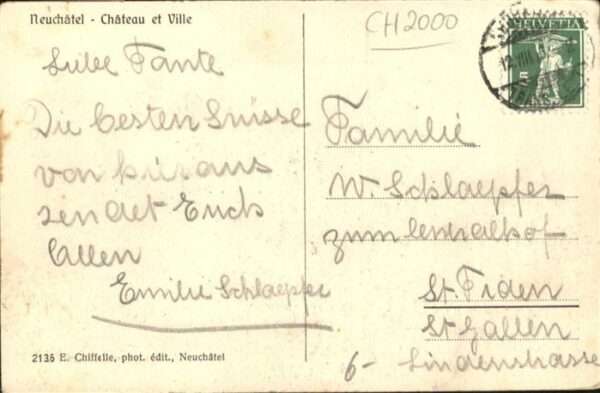 Neuchâtel - Château et Ville
CH2000
HELVETIA
5
Liebe Tante
Die besten Grüsse
von hier aus
sendet Euch
Allen
Emilie Schlaepfer
Familie
W. Schlaepfer
zum Centralhof
St. Fiden
St Gallen
Lindenstrasse
6-
2135 E. Chiffelle, phot. édit., Neuchâtel